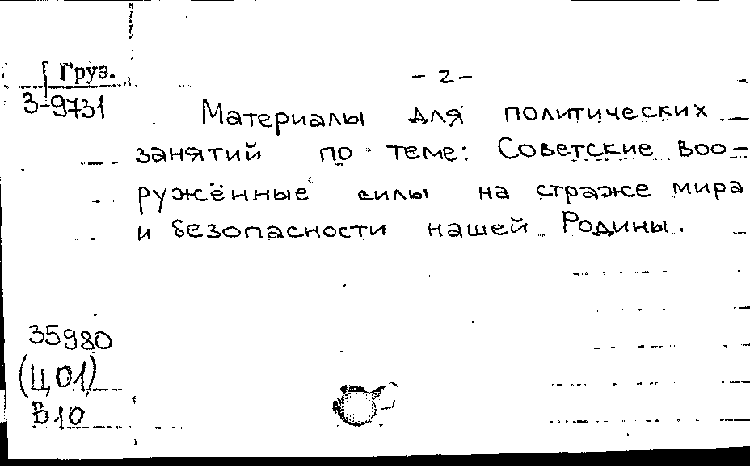 Груз.
3-9731
- 2 -
Материалы для политических
занятий по теме: Советские воо-
ружённые силы на страже мира
и безопасности нашей Родины.
35980
(Ц01)
В10